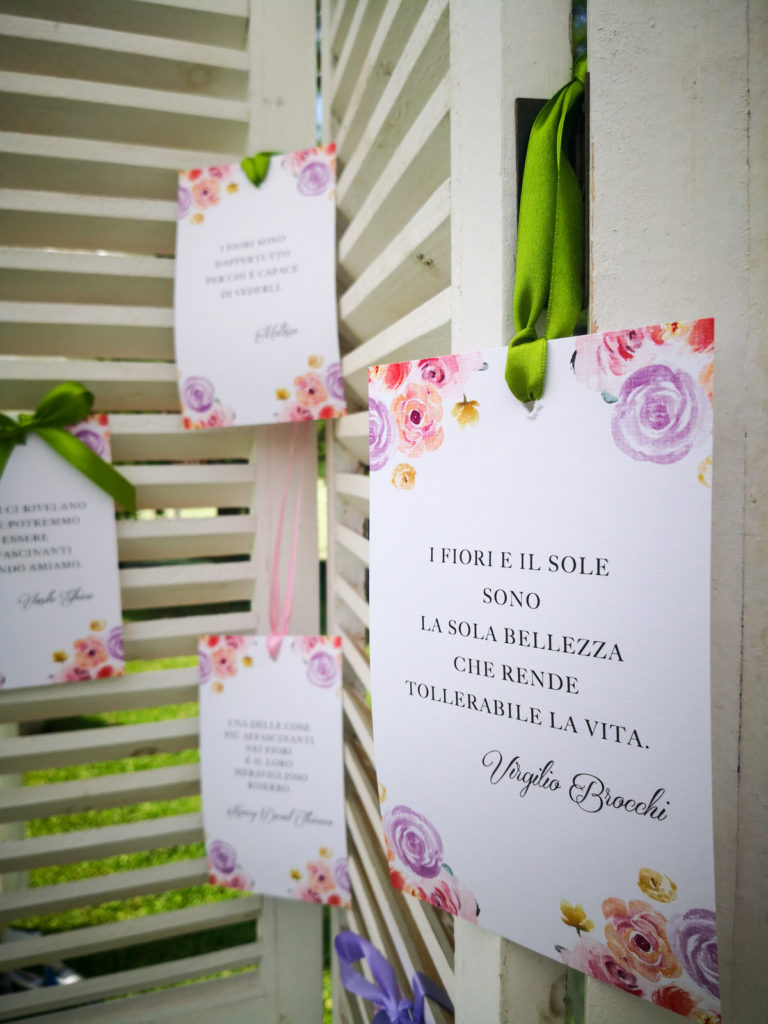 I FIORI SONO
DAPPERTUTTO
PER CHI È CAPACE
DI VEDERLI.
Matisse
CI RIVELANO
POTREMMO
ESSERE
AMIAMO.
UNA DELLE COSE
PIÙ AFFASCINANTI
NEI FIORI
È IL LORO
MERAVIGLIOSO
RISERBO.
Henry David Thoreau
I FIORI E IL SOLE
SONO
LA SOLA BELLEZZA
CHE RENDE
TOLLERABILE LA VITA.
Virgilio Brocchi